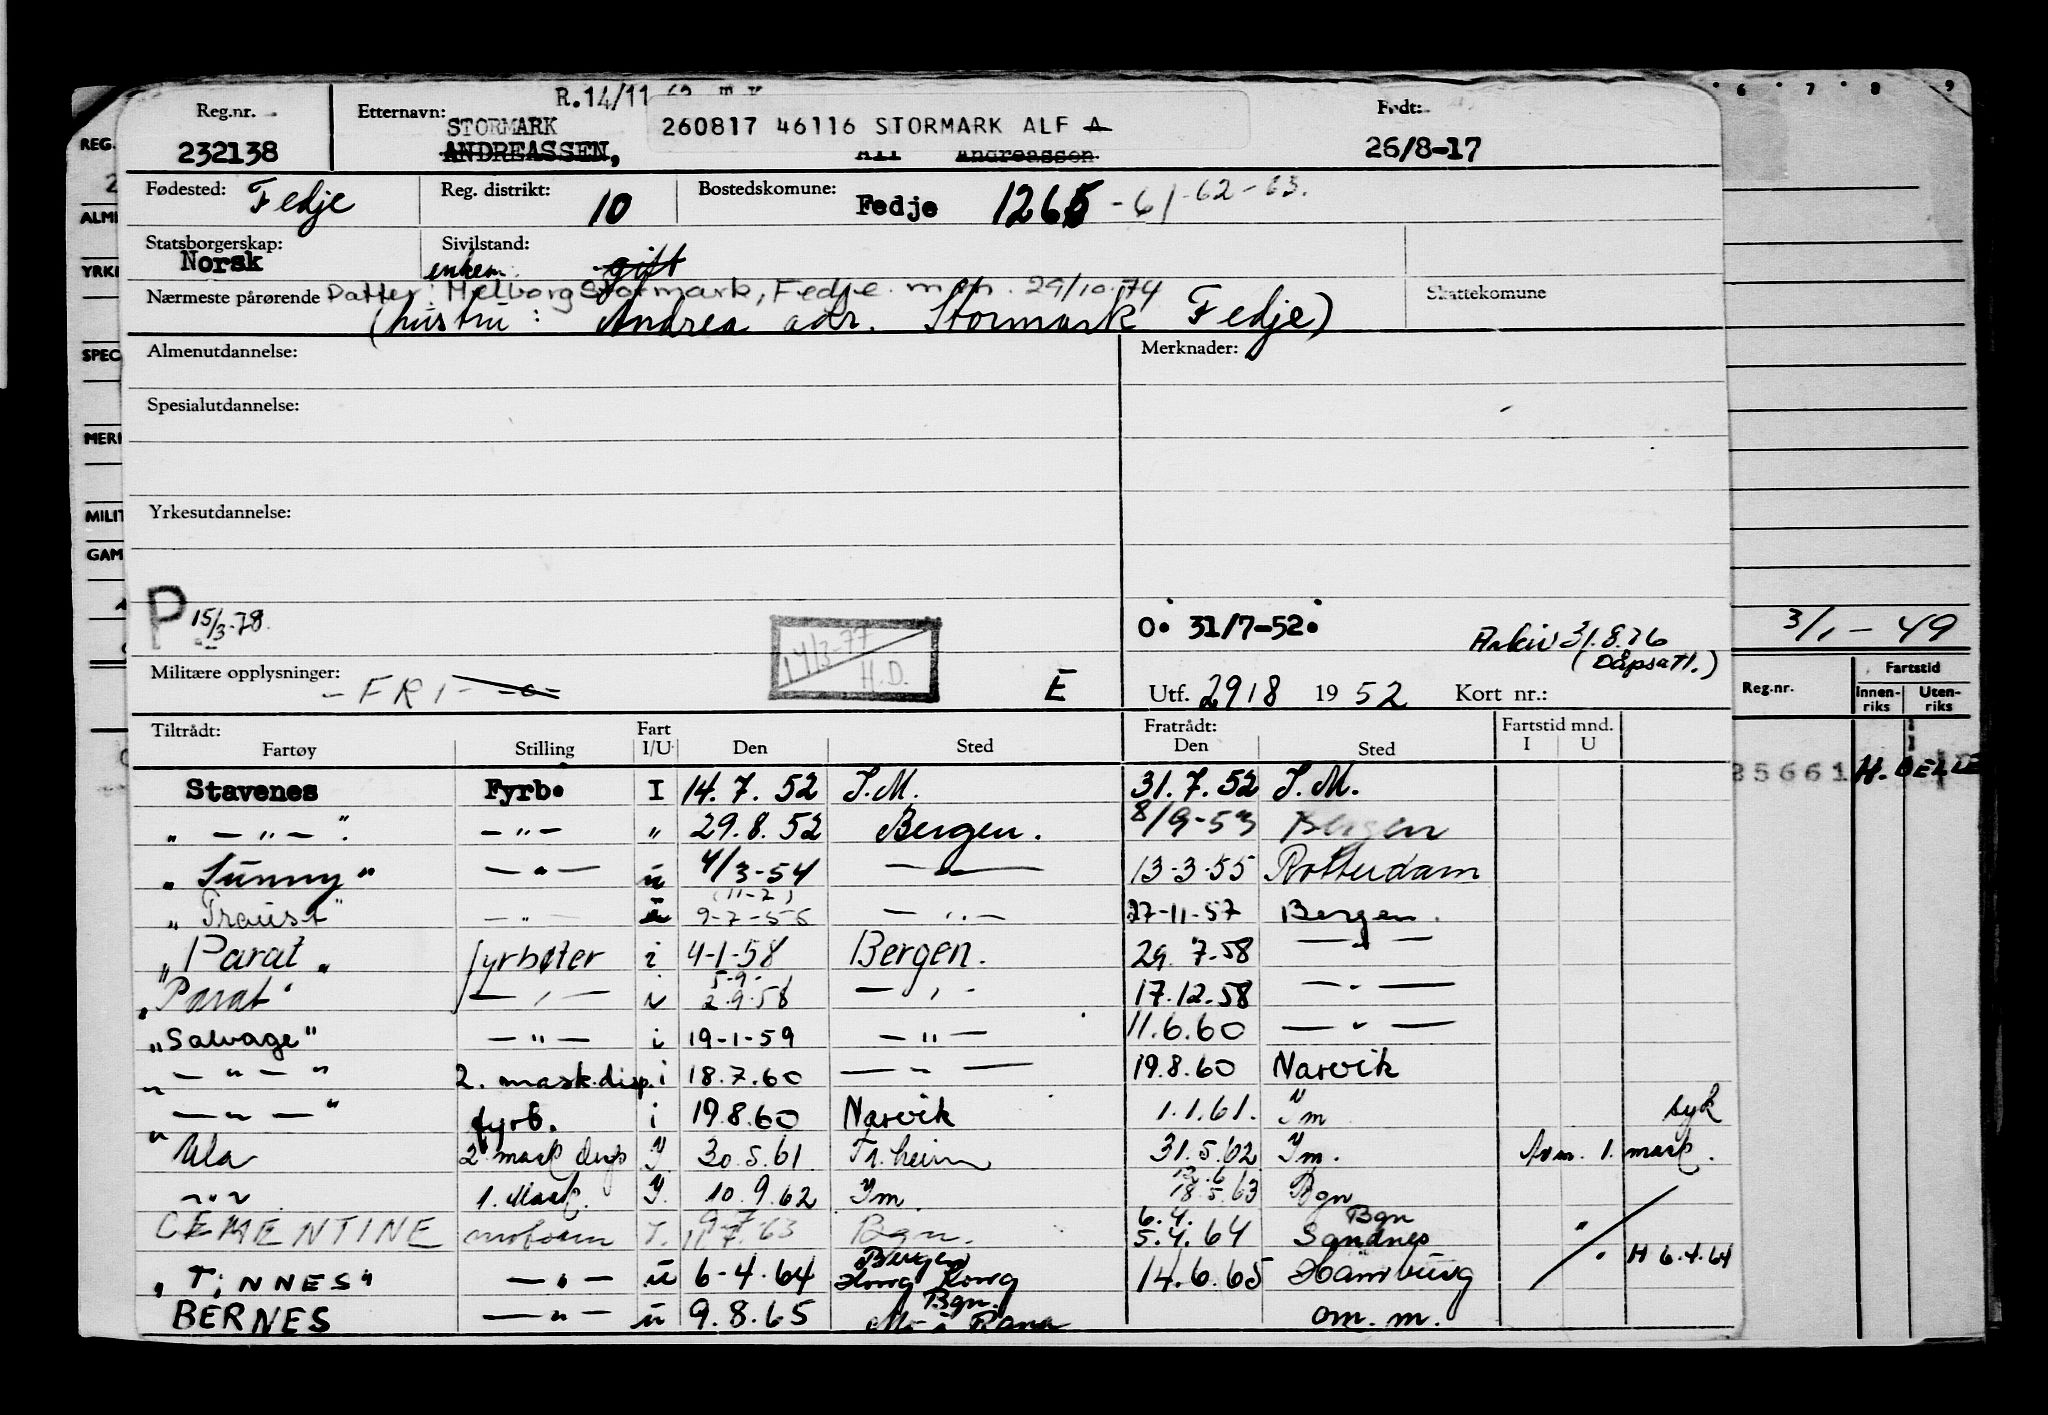 R.14/11
Reg.nr. Etternavn: STORMARK 260817 46116 STORMARK ALF A Født:
232138 ANDREASSEN, Alf Andreassen 26/8-17
Fødested: Fedje Reg. distrikt: 10 Bostedskomune: Fedje 1265 -61-62-63.
Statsborgerskap: Norsk Sivilstand: enkem. gift
Nærmeste pårørende Datter: Melborg Stormark, Fedje. 29/10.74 Skattekomune
(hustru: Andrea adr. Stormark Fedje)
Almenutdannelse: Merknader:
Spesialutdannelse:
Yrkesutdannelse:
P 15/3-78. 14/3-77 H.D. O. 31/7-52. Arkiv 31.8.76 (Dåpsatt.)
Militære opplysninger: -FRI- E Utf. 2918 1952 Kort nr.:
Tiltrådt: Fart Fratrådt: Fartstid mnd.
Fartøy Stilling I/U Den Sted Den Sted I U
Stavenes Fyrb. I 14.7.52 I.M. 31.7.52 I.M.
" — " — ". — " — " 29.8.52 Bergen. 8/9-53 Bergen
"Sunny" — " — u 4/3-54 — " — 13-3-55 Rotterdam
(11-2)
"Traust" — " — u 9-7-55 — " — 27-11-57 Bergen.
"Parat" fyrbøter i 4-1-58 Bergen. 29.7-58 — " —
5-9-
"Parat" — " — i 2.9.58 — " — 17.12.58 — " —
"Salvage" — " — i 19-1-59 — " — 11.6.60 — " —
" — " — " 2. mask.disp. i 18.7.60 — " — 19.8.60 Narvik
" — " — " fyrb. i 19.8.60 Narvik 1.1.61. Im syk
Ula 2 mask disp I 30.5.61 Tr.heim 31.5.62 Im. Avm. 1. mask.
" " " 1. Mask. I. 10.9.62 Im. 18.5.63 Bgn
CEMENTINE motorm I. 7.63 Bgn. 6.4. 5.4.64 Bgn Sandnes "
"TINNES" — " — u 6-4-64 Bergen Hong Kong 14.6.65 Hamburg " H 6.4.64
BERNES — " — u 9.8.65 Bgn. Mo i Rana om. m.
REG.
ALM
YRK
SPEC
MER
MILIT
GAM
6 7 8 9
3/1-49
Reg.nr. Fartstid
Innen-riks Uten-riks
25661